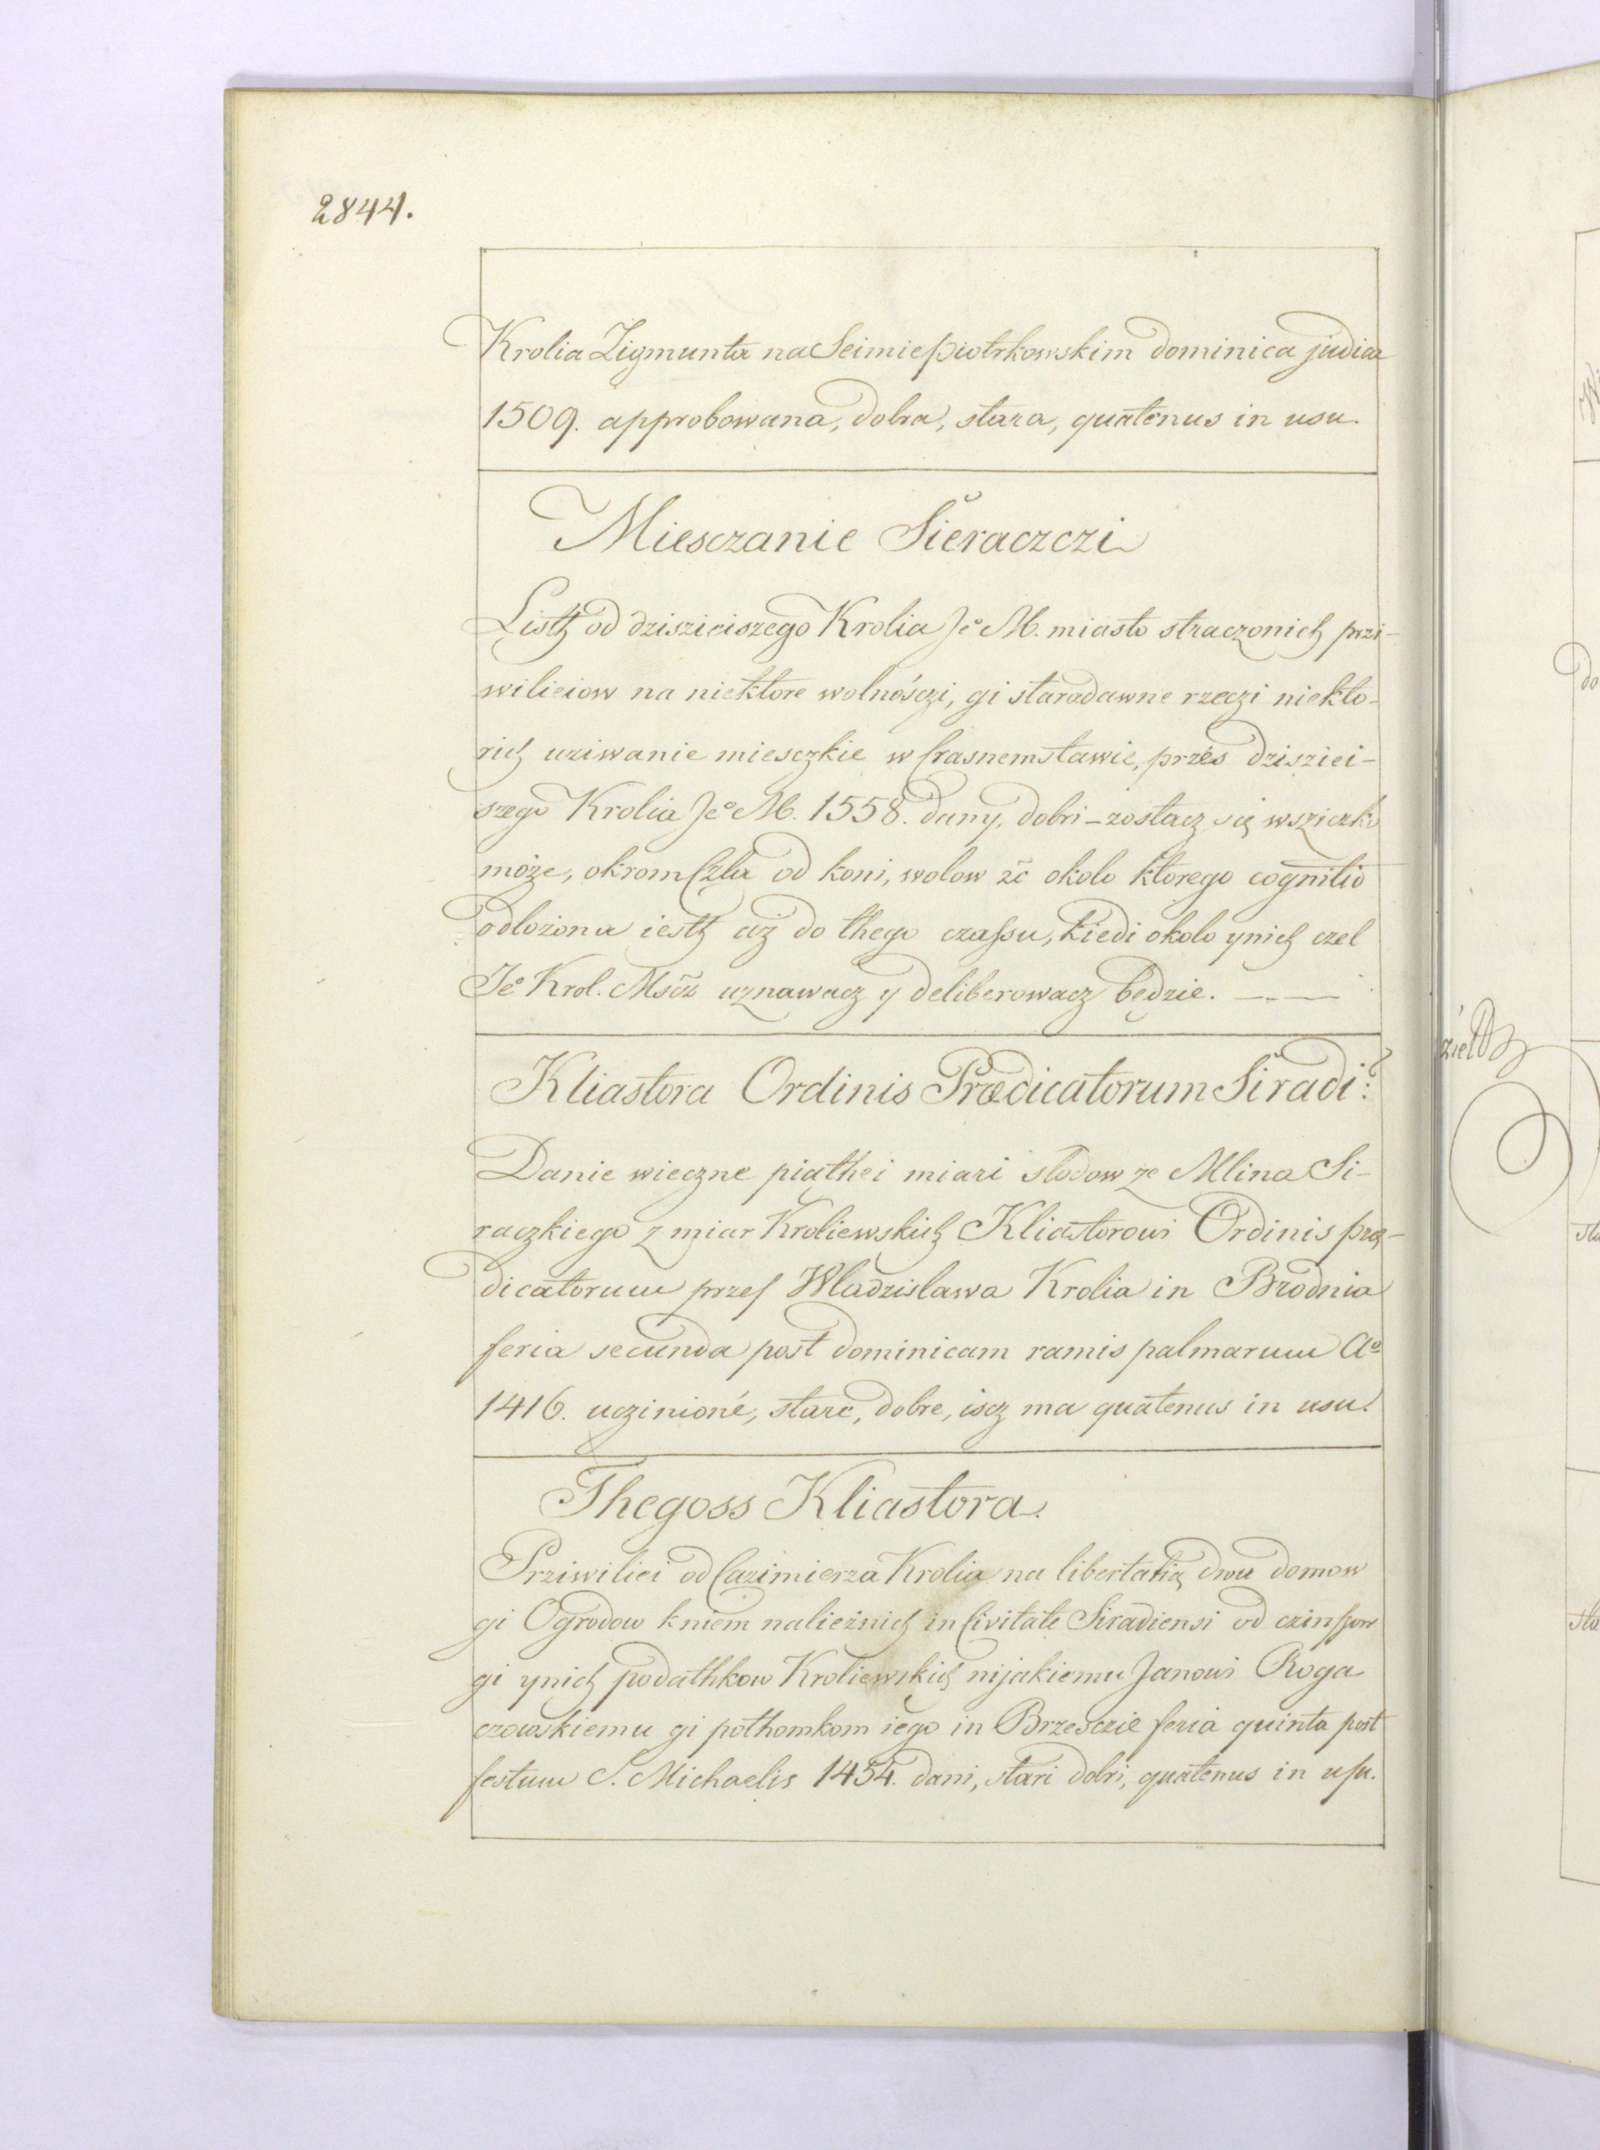 2844.
Krolia Zigmunta na Seimie piotrkowskim dominica judica
1509. approbowana, dobra, stara, quatenus in usu.
Miesczanie Sieraczczi
Listh od dzisziejszego Krolia Jeo M. miasto straczonich przi-
wilieiow na niektore wolnósczi, gi staradawne rzeczi niekto-
rich uziwanie miesczkie w Crasnemstawie, przes dzisziei-
szego Krolia Jeo M. 1558. dany, dobri – zostacz się wsziczko
może, okrom Czla od koni, wolow &c okolo ktorego cognitio
odlożona iesth aż do thego czassu, kiedi okolo ynich czel
Jeo Krol. Mscz uznawacz y deliberowacz będzie.
Kliastora Ordinis Prædicatorum Siradi:
Danie wieczne piąthei miari slodow ze Mlina Si-
raczkiego z miar Kroliewskich Kliastorowi Ordinis præ-
dicatorum przes Wladzislawa Krolia in Brodnia
feria secunda post dominicam ramis palmarum Ao
1416. uczinioné, stare, dobre, iscz ma quatenus in usu.
Thegoss Kliastora.
Priwiliei od Cazimierza Krolia na libertatią dwu domow
gi Ogrodow kniem nalieżnich in Civitate Siradiensi od czinssow
gi ynich podathkow Kroliewskich nijakiemu Janowi Roga
czowskiemu gi pothomkom iego in Brzesczie feria quinta post
festum S. Michaelis 1454. dani, stari dobri, quatenus in usu.